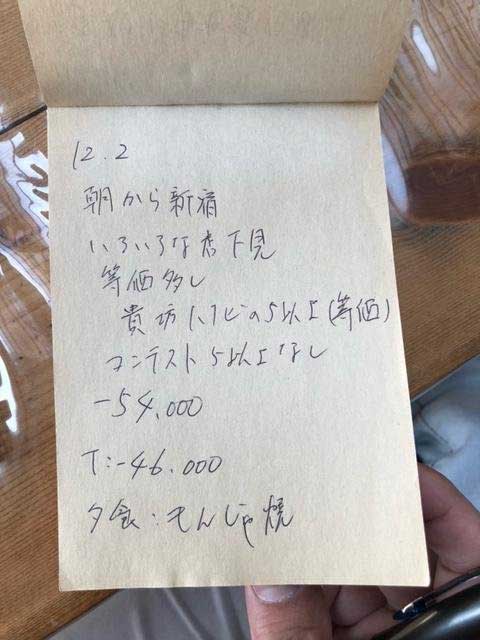 12.2
朝から新宿
いろいろな店下見
等価多し
貴坊 5以上(等価)
コンテスト5以上なし
-54.000
T:-46.000
夕食:もんじゃ焼